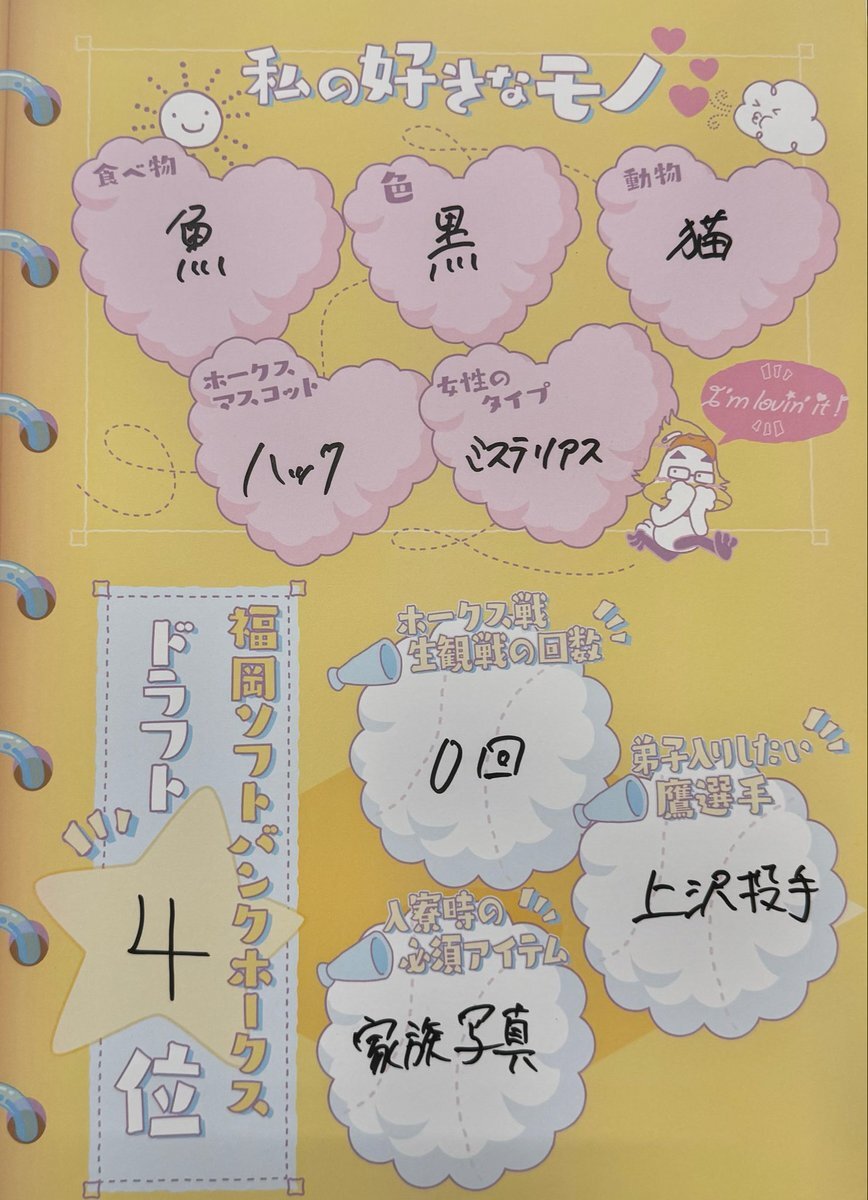 私の好きなモノ
食べ物
魚
色
黒
動物
猫
ホークス
マスコット
ハック
女性の
タイプ
ミステリアス
I'm lovin' it!
福岡ソフトバンクホークス
ドラフト
4
位
ホークス戦
生観戦の回数
0回
弟子入りしたい
鷹選手
上沢投手
入寮時の
必須アイテム
家族写真